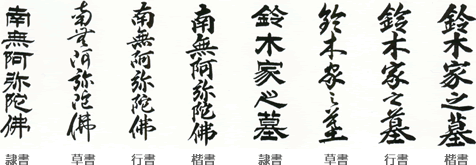 鈴木家之墓
楷書
鈴木家之墓
行書
鈴木家之墓
草書
鈴木家之墓
隷書
南無阿弥陀佛
楷書
南無阿弥陀佛
行書
南無阿弥陀佛
草書
南無阿弥陀佛
隷書